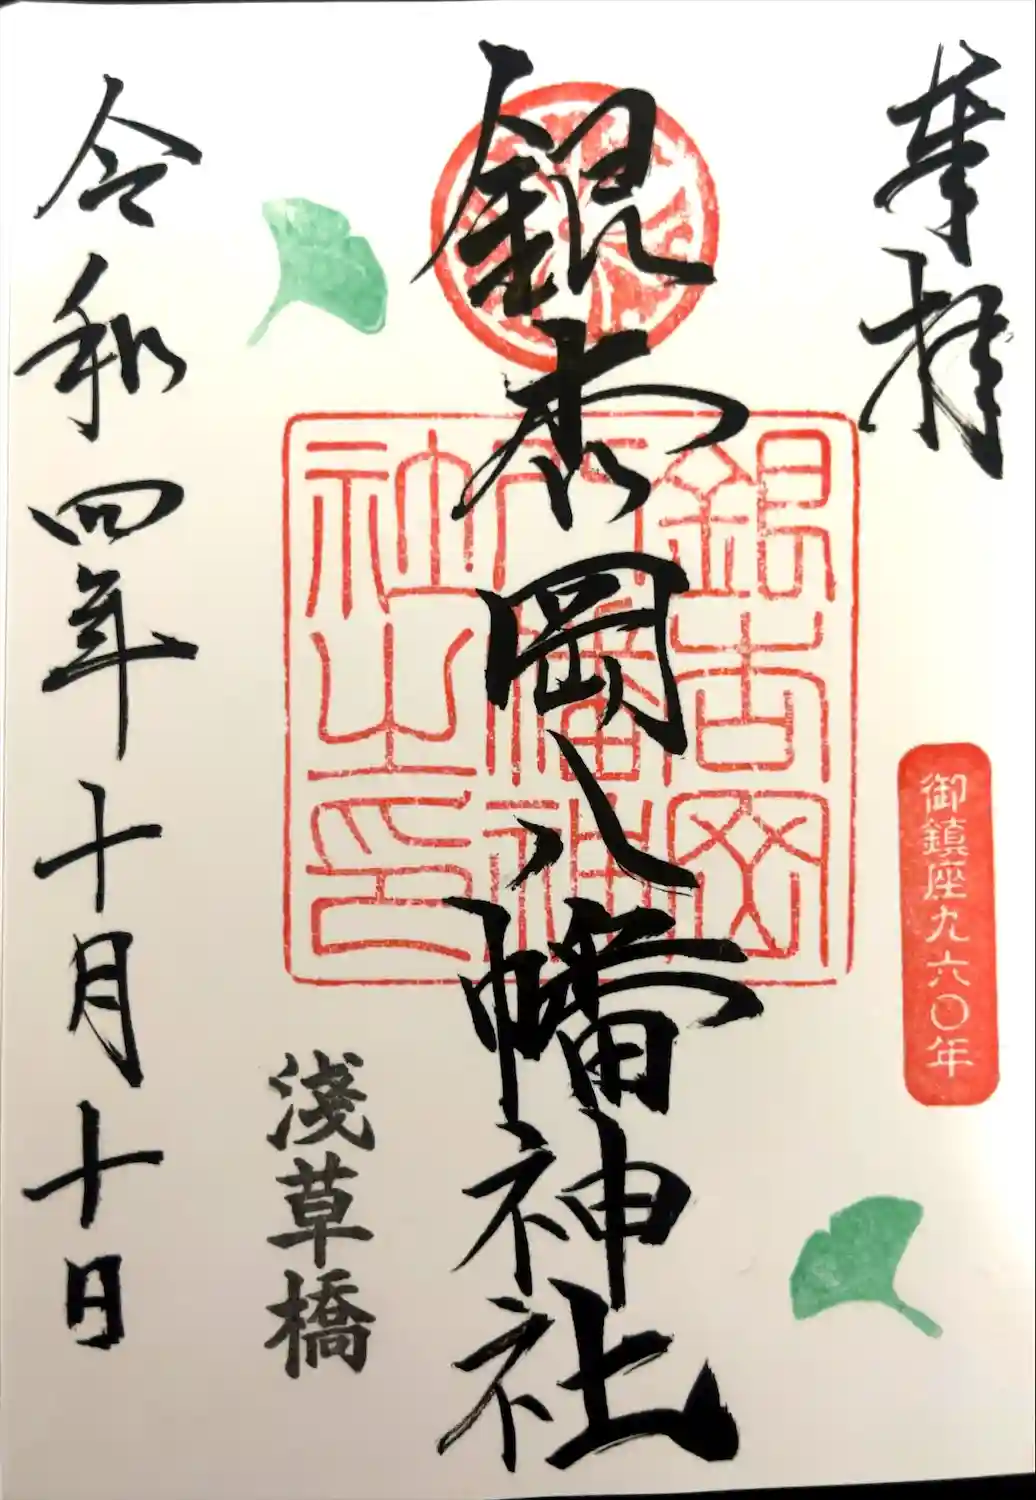 奉拝
御鎮座九六〇年
銀杏岡八幡神社
銀杏岡
八幡神
社之印
淺草橋
令和四年十月十日